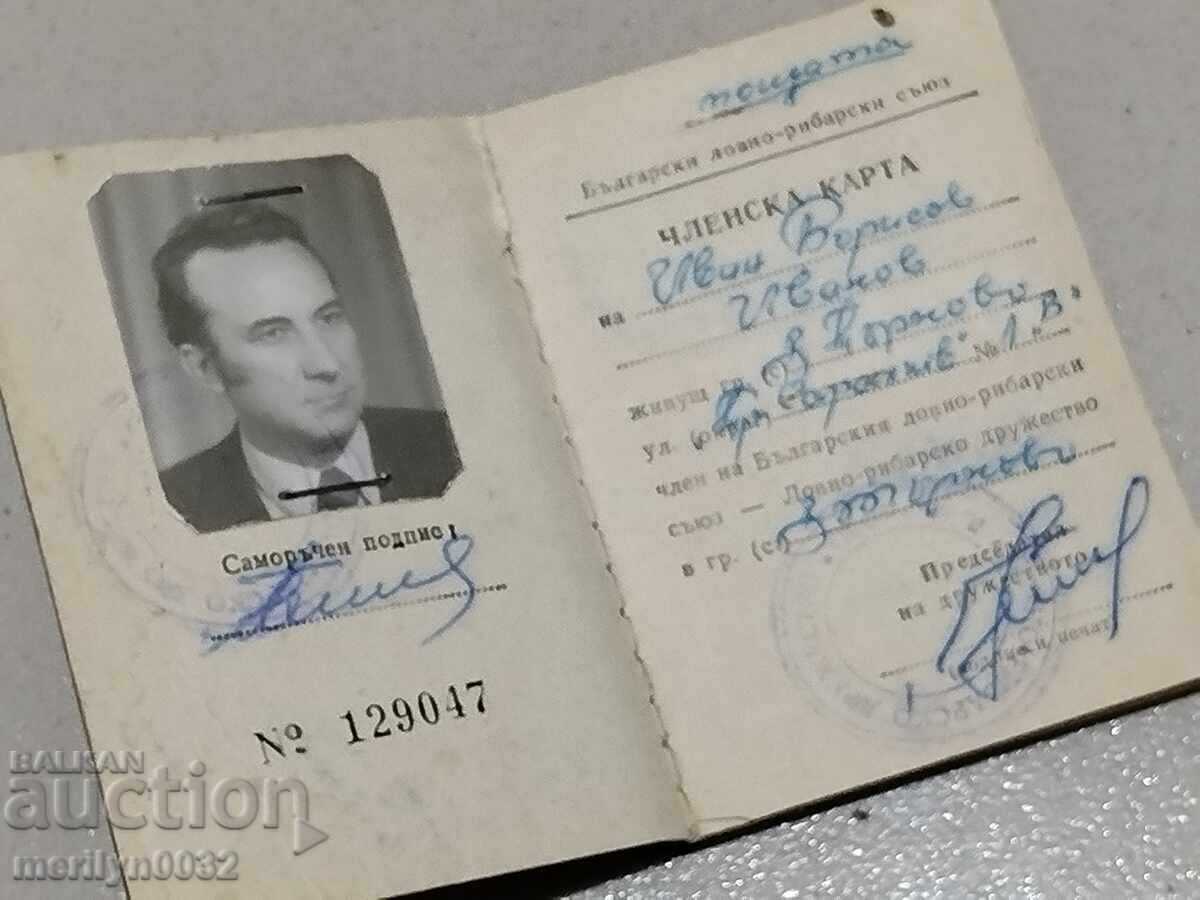 Саморъчен подпис:
№ 129047
пощата
Български ловно-рибарски съюз
ЧЛЕНСКА КАРТА
на Иван Борисов
Иванов
живущ гр. В Търново
ул. № 1 "В"
член на Българския ловно-рибарски
съюз — Ловно-рибарско дружество
в гр. (с.) В Търново
Председател
на дружеството
печат
BALKAN
auction
merilyn0032